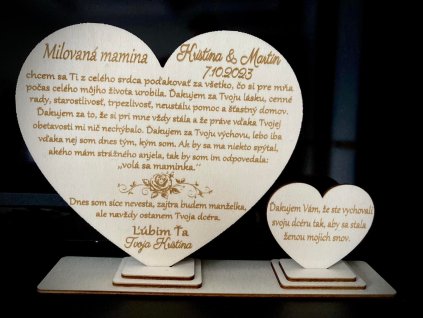 Milovaná mamina
Kristína & Martin
7.10.2023
chcem sa Ti z celého srdca poďakovať za všetko, čo si pre mňa
počas celého môjho života urobila. Ďakujem za Tvoju lásku, cenné
rady, starostlivosť, trpezlivosť, neustálu pomoc a šťastný domov.
Ďakujem za to, že si pri mne vždy stála a že práve vďaka Tvojej
obetavosti mi nič nechýbalo. Ďakujem za Tvoju výchovu, lebo iba
vďaka nej som dnes tým, kým som. Ak by sa ma niekto spýtal,
akého mám strážneho anjela, tak by som im odpovedala:
"volá sa maminka."
Dnes som síce nevesta, zajtra budem manželka,
ale navždy ostanem Tvoja dcéra.
Ľúbim Ťa
Tvoja Kristína
Ďakujem Vám, že ste vychovali
svoju dcéru tak, aby sa stala
ženou mojich snov.